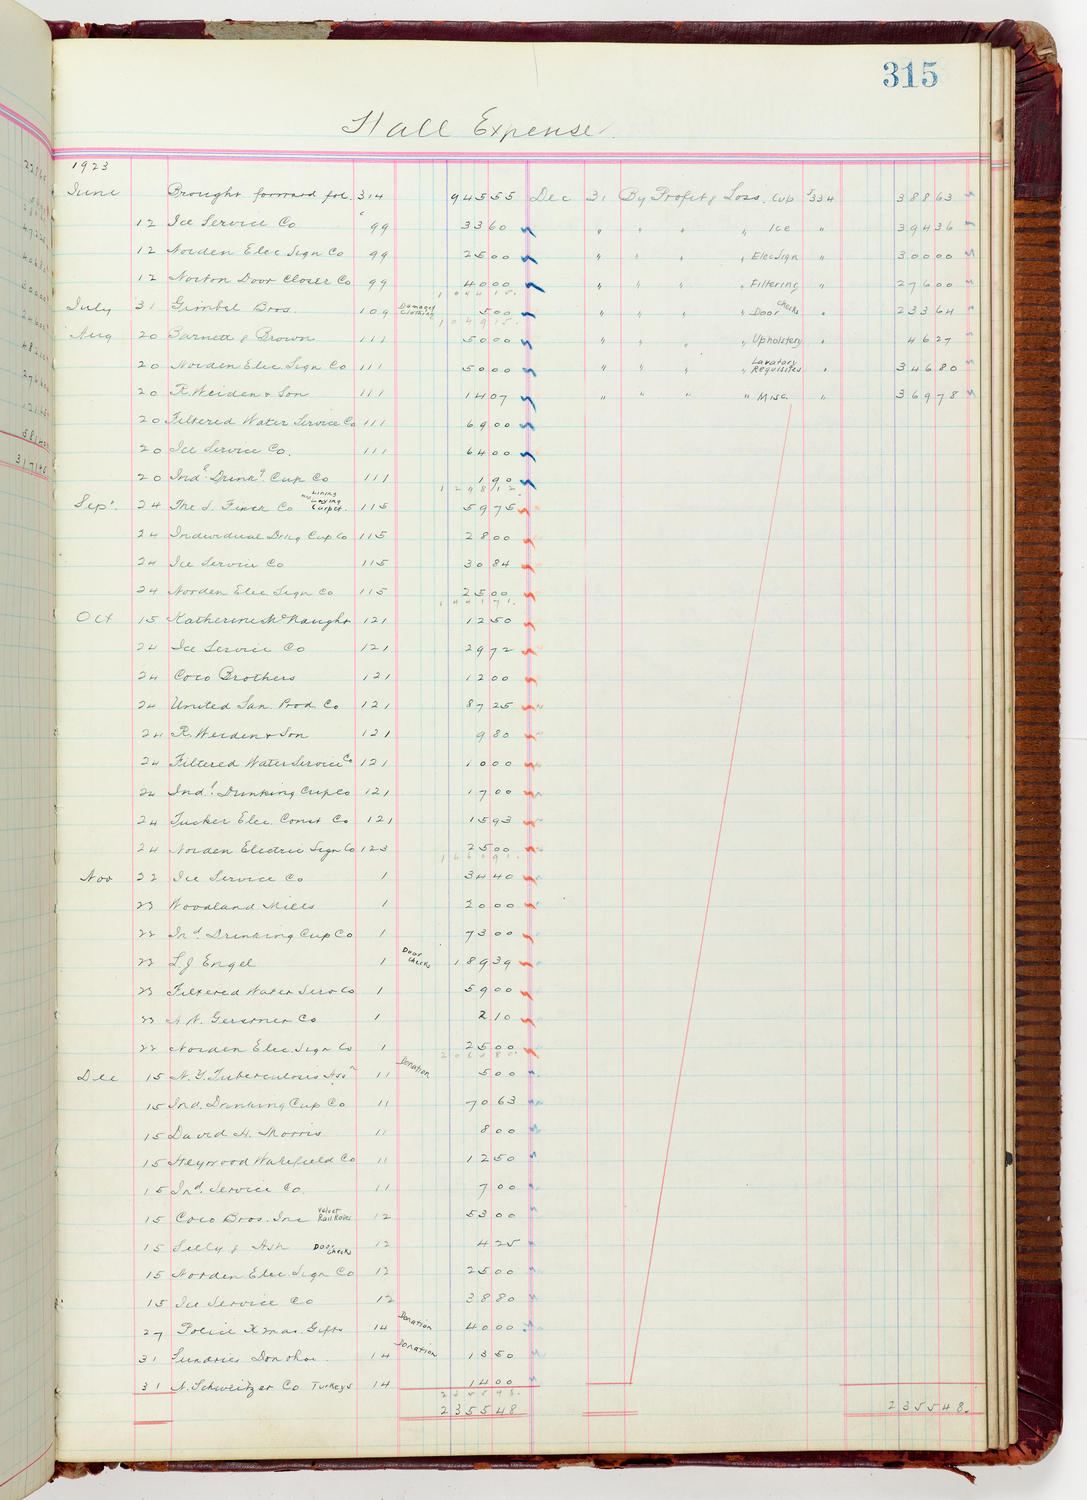 315
Hall Expense
1923
June Brought forward fol. 314 945 55 Dec 31 By Profit & Loss. Cup $334 388 63
12 Ice Service Co 99 33 60 " " " " Ice " 394 36
12 Norden Elec Sign Co 99 25 00 " " " " Elec Sign " 300 00
12 Norton Door Closer Co 99 40 00 " " " " Filtering " 276 00
1044 15
July 31 Gimbel Bros. 109 Damaged Clothing 5 00 " " " " Door Checks " 233 64
1049 15
Aug 20 Barnett & Brown 111 50 00 " " " " Upholstery " 46 27
20 Norden Elec. Sign Co 111 50 00 " " " " Lavatory Requisites " 346 80
20 R. Weiden & Son 111 14 07 " " " " Misc. " 369 78
20 Filtered Water Service Co 111 69 00
20 Ice Service Co. 111 64 00
20 Ind'l Drink'g Cup Co 111 1 90
1298 12
Sept. 24 The S. Finer Co Lining Laying Carpet. 115 59 75
24 Individual Drkg Cup Co 115 28 00
24 Ice Service Co 115 30 84
24 Norden Elec Sign Co 115 25 00
1441 71
Oct 15 Katherine McNaught 121 12 50
24 Ice Service Co 121 29 72
24 Coco Brothers 121 12 00
24 United San. Prod. Co 121 87 25
24 R. Weiden & Son 121 9 80
24 Filtered Water Service Co 121 10 00
24 Ind'l Drinking Cup Co 121 17 00
24 Tucker Elec. Const Co 121 15 93
24 Norden Electric Sign Co 123 25 00
1660 91
Nov 22 Ice Service Co 1 34 40
23 Woodland Mills 1 20 00
22 Ind. Drinking Cup Co 1 73 00
22 L. J. Engel 1 Door Checks 189 39
23 Filtered Water Serv Co 1 59 00
23 Gerstner Co 1 2 10
22 Norden Elec. Sign Co 1 25 00
2063 80
Dec 15 N. Y. Tuberculosis Assn 11 Donation 5 00
15 Ind. Drinking Cup Co 11 70 63
15 David H. Morris 11 8 00
15 Heywood Wakefield Co 11 12 50
15 Ind. Service Co. 11 7 00
15 Coco Bros. Inc Velvet Rail Ropes 12 53 00
15 Selly & Ash Door Checks 12 4 25
15 Norden Elec Sign Co 12 25 00
15 Ice Service Co 12 38 80
27 Police Xmas. Gifts 14 Donation 40 00
31 Sundries Donohue 14 Donation 13 50
31 N. Schweitzer Co Turkeys 14 14 00
2355 48
2355 48 2355 48.